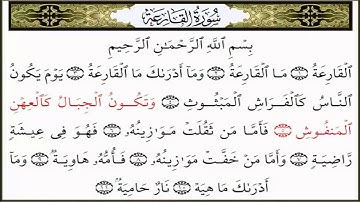 سُورَةُ القَارِعَةِ
بِسْمِ اللَّهِ الرَّحْمَٰنِ الرَّحِيمِ
الْقَارِعَةُ ۝ مَا الْقَارِعَةُ ۝ وَمَا أَدْرَىٰكَ مَا الْقَارِعَةُ ۝ يَوْمَ يَكُونُ
النَّاسُ كَالْفَرَاشِ الْمَبْثُوثِ ۝ وَتَكُونُ الْجِبَالُ كَالْعِهْنِ
الْمَنفُوشِ ۝ فَأَمَّا مَن ثَقُلَتْ مَوَٰزِينُهُۥ ۝ فَهُوَ فِى عِيشَةٍ
رَّاضِيَةٍ ۝ وَأَمَّا مَنْ خَفَّتْ مَوَٰزِينُهُۥ ۝ فَأُمُّهُۥ هَاوِيَةٌ ۝ وَمَا
أَدْرَىٰكَ مَا هِيَهْ ۝ نَارٌ حَامِيَةٌۢ ۝